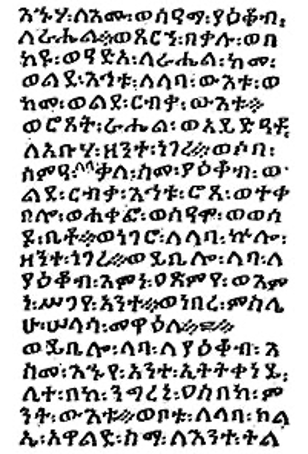 እኁሃ፡ለእሙ፡ወሰዐማ፡ያዕቆብ፡
ለራሔል።ወጸርኀ፡በቃሉ፡ወበ
ከየ፡ለራሔል፡ከመ፡
ወልደ፡እኅቱ፡ለላባ፡ውእቱ፡ወ
ከመ፡ወልደ፡ርብቃ፡ውእቱ።
ወሮጸት፡ራሔል፡ወአይድዓቶ
ለአቡሃ፡ዘንተ፡ነገረ።ወሶበ፡
ሰምዐ፡ላባ፡ቃለ፡ስመ፡ያዕቆብ፡ወ
ልደ፡ርብቃ፡እኅቱ፡ሮጸ፡ወተቀ
በሎ፡ወሐቀፎ፡ወሰዐሞ፡ወወሰ
ዶ፡ቤቶ።ወነገሮ፡ለላባ፡ኵሎ፡
ዘንተ፡ነገረ።ወይቤሎ፡ላባ፡ለ
ያዕቆብ፡እምነ፡ዐጽምየ፡ወእም
ነ፡ሥጋየ፡አንተ።ወነበረ፡ምስሌ
ሁ፡ሠላሳ፡መዋዕለ።
ወይቤሎ፡ላባ፡ለያዕቆብ፡እ
ስመ፡እኁየ፡አንተ፡ኢትትቀነይ፡
ሊተ፡በከ፡ንግረኒ፡ዐስበከ፡ም
ንት፡ውእቱ።ወቦቱ፡ለላባ፡ክል
ኤ፡አዋልድ፡ስማ፡ለእንተ፡ትል